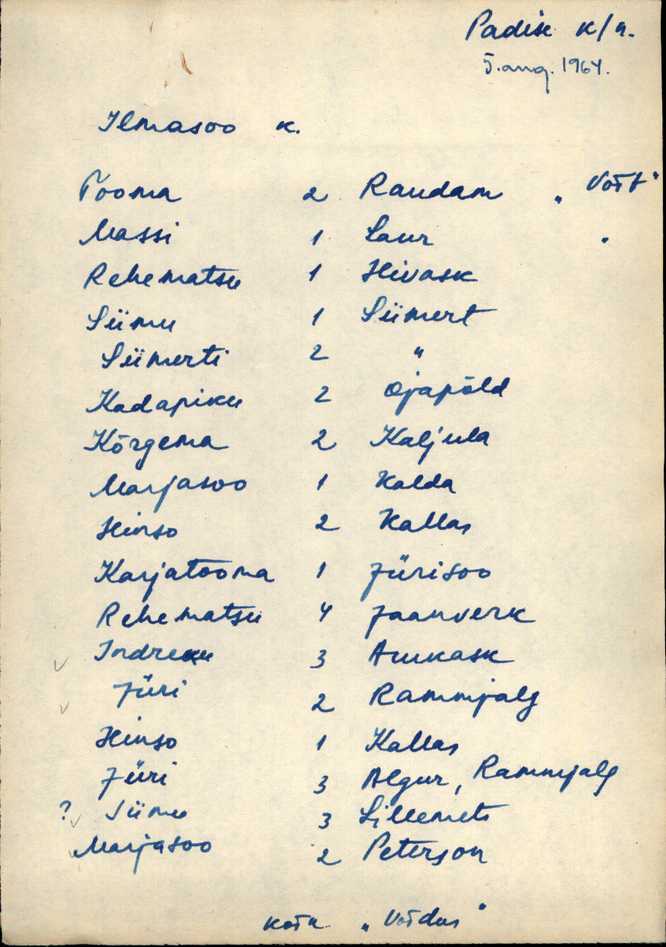 Padise k/n.
5. aug. 1964.
Ilmasoo k.
Tooma 2 Raudam „Võit“
Massi 1 Laur "
Rehematsu 1 Hivask
Siimu 1 Siimert
Siimerti 2 "
Kadapiku 2 Ojapõld
Kõrgema 2 Kaljula
Marjasoo 1 Kalda
Hinso 2 Kallas
Karjatooma 1 Jürisoo
Rehematsu 4 Jaanverk
Indreku 3 Arukask
Jüri 2 Rammjalg
Hinso 1 Kallas
Jüri 3 Algur, Rammjalg
? Siimu 3 Lillemets
Marjasoo 2 Peterson
„Võidus“